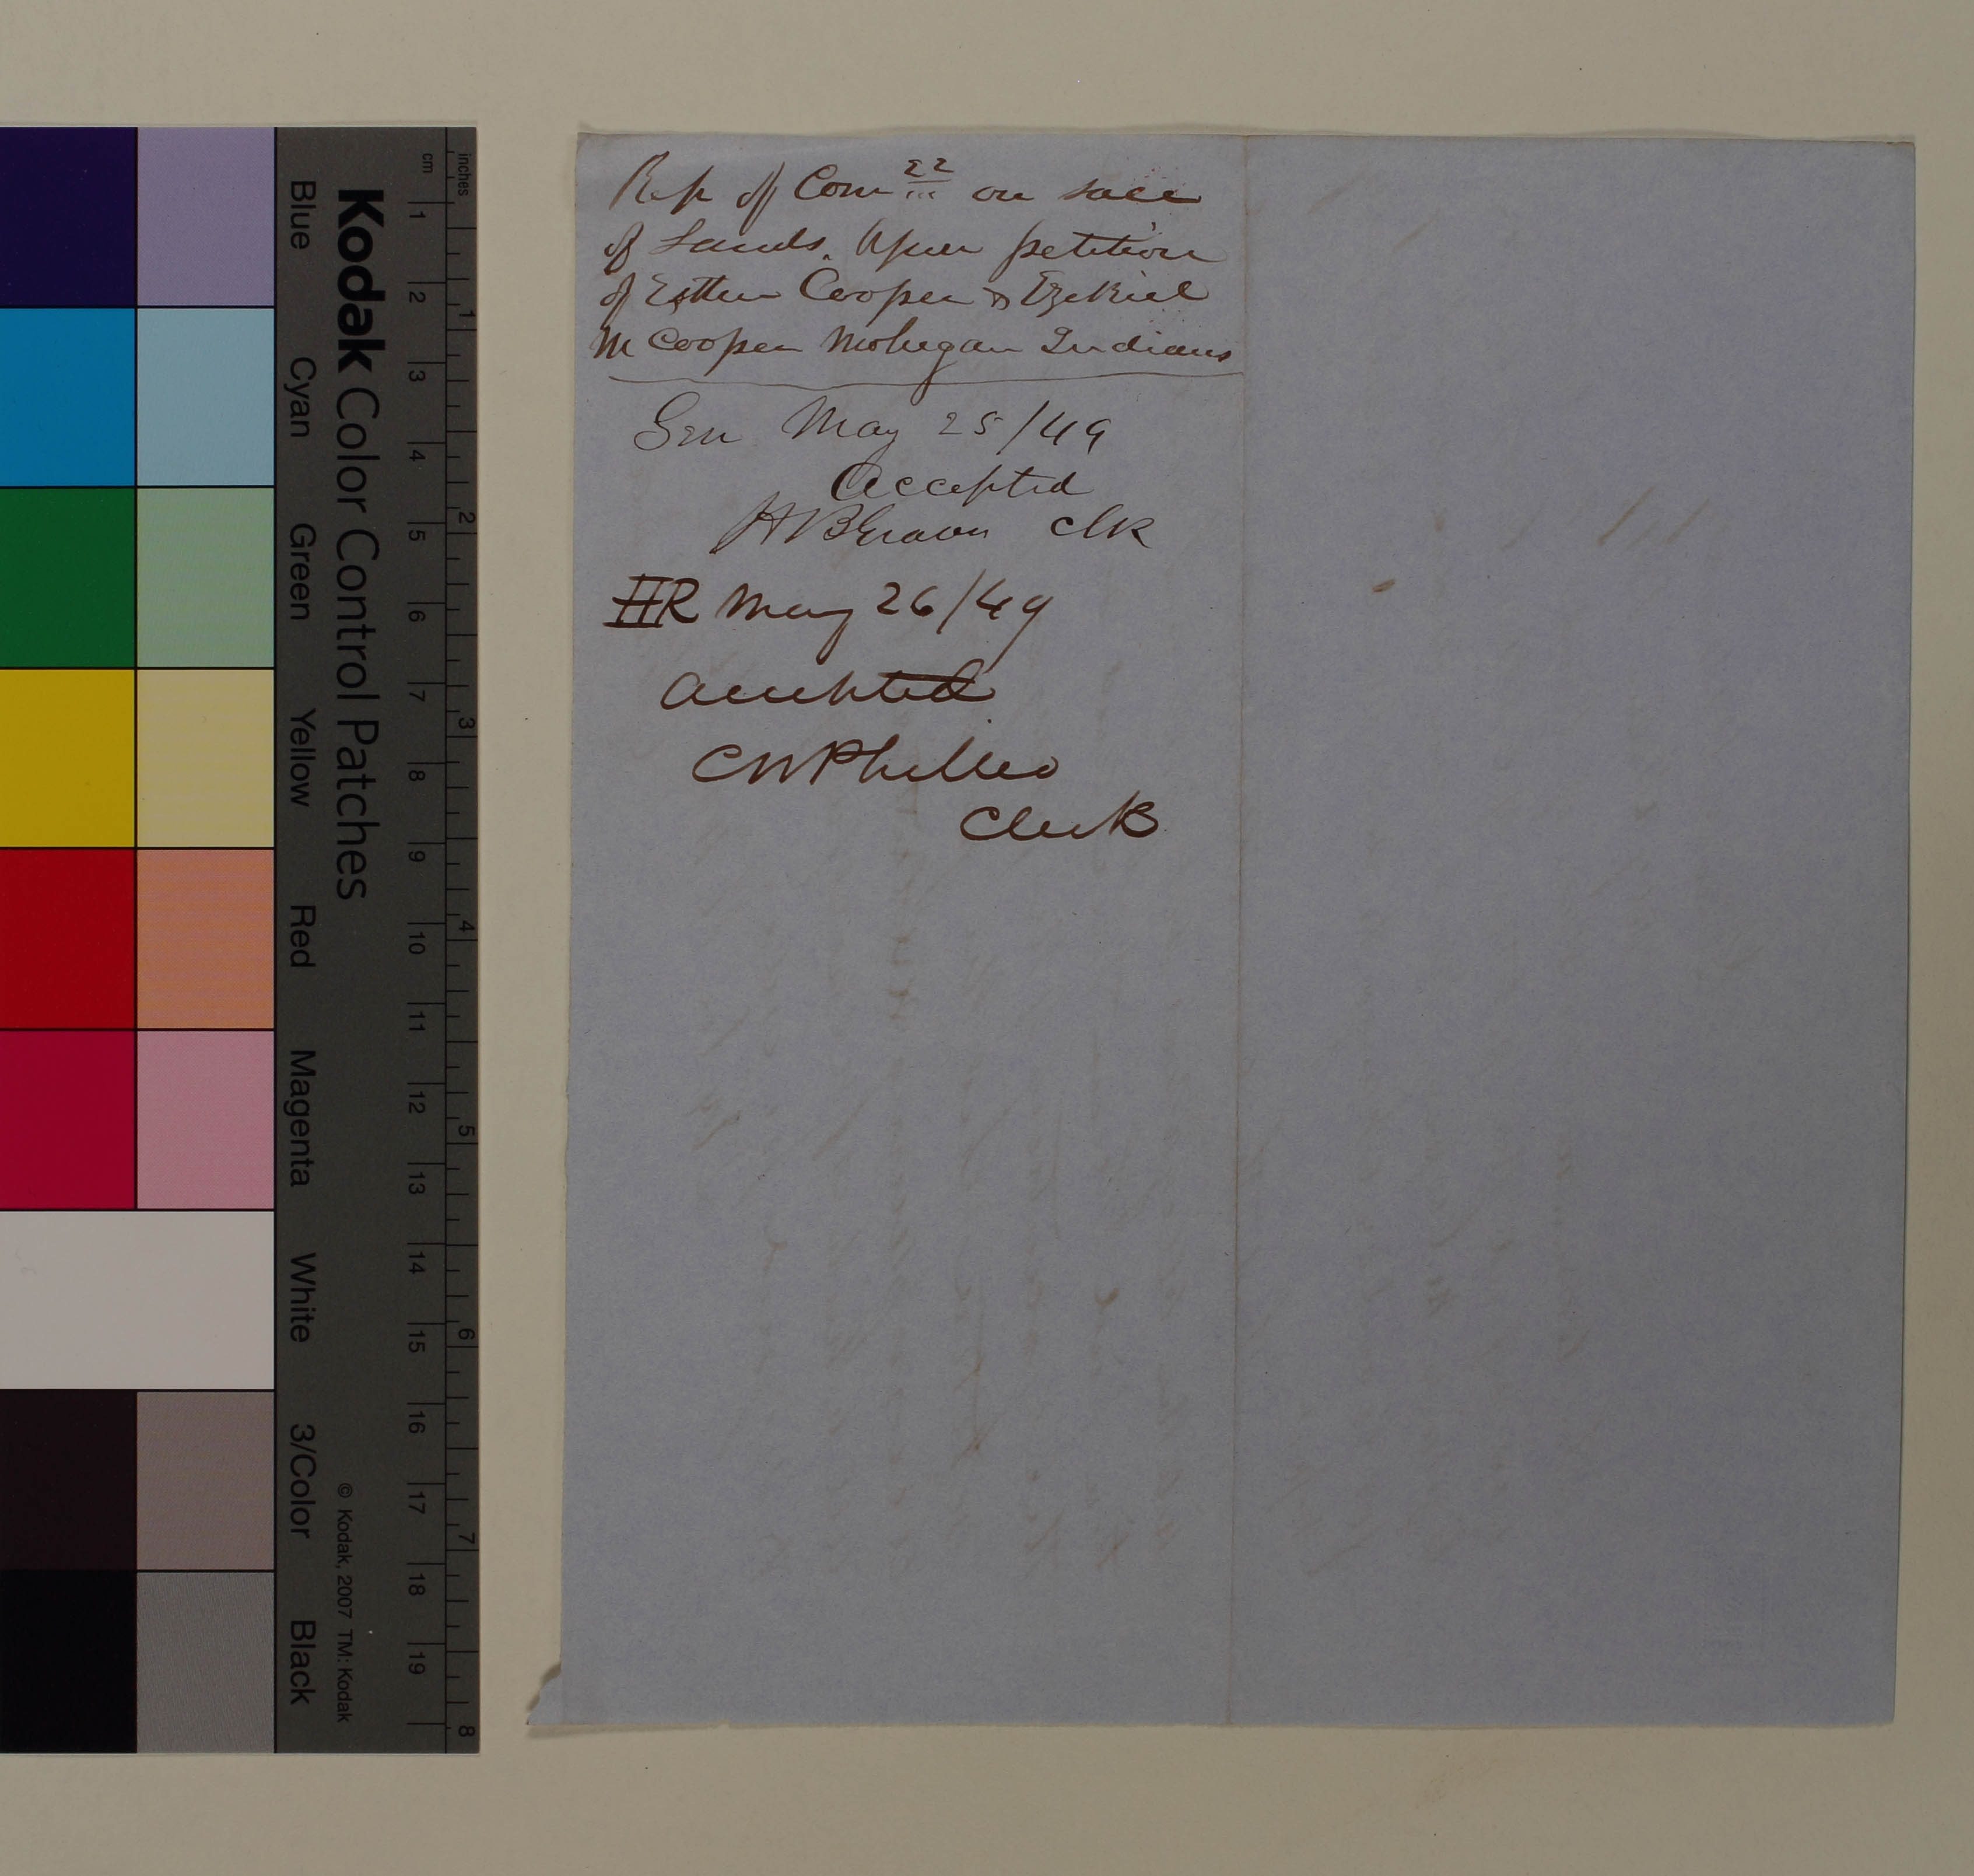 Rep of Com ee on sale
of Lands. Upon petition
of Esther Cooper & Ezekiel
M Cooper Mohegan Indians
Sen May 25/49
Accepted
H B Graves Clk
HR May 26/49
accepted
C W Philleo
Clerk
Kodak Color Control Patches
Blue Cyan Green Yellow Red Magenta White 3/Color Black
© Kodak, 2007 TM: Kodak
cm 1 2 3 4 5 6 7 8 9 10 11 12 13 14 15 16 17 18 19
inches 1 2 3 4 5 6 7 8